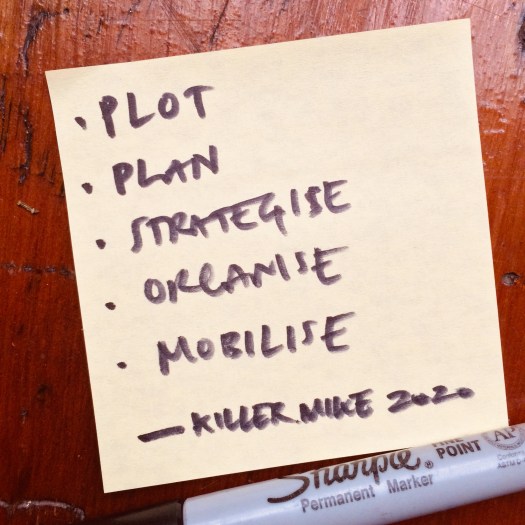 • PLOT
• PLAN
• STRATEGISE
• ORGANISE
• MOBILISE
— KILLER MIKE 2020
Sharpie®
FINE POINT
Permanent Marker
AP